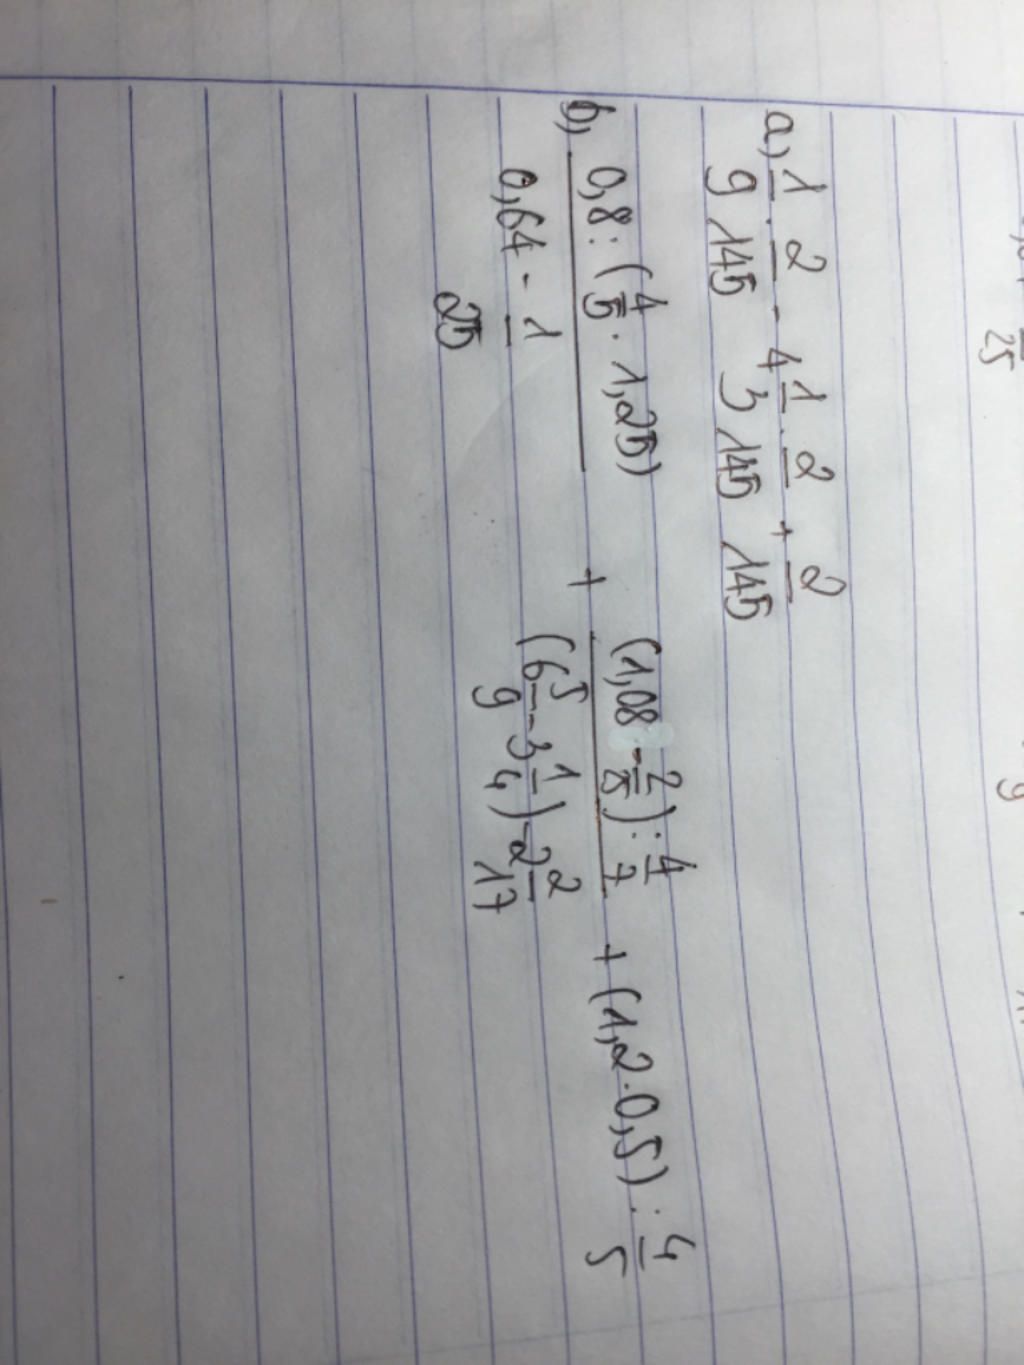 a, 1/9 . 2/145 - 4 1/3 . 2/145 + 2/145
b, 0,8 : (4/5 . 1,25) / 0,64 - 1/25 + (1,08 - 2/25) : 4/7 / (6 5/9 - 3 1/4) . 2 2/17 + (1,2 . 0,5) : 4/5
25
9